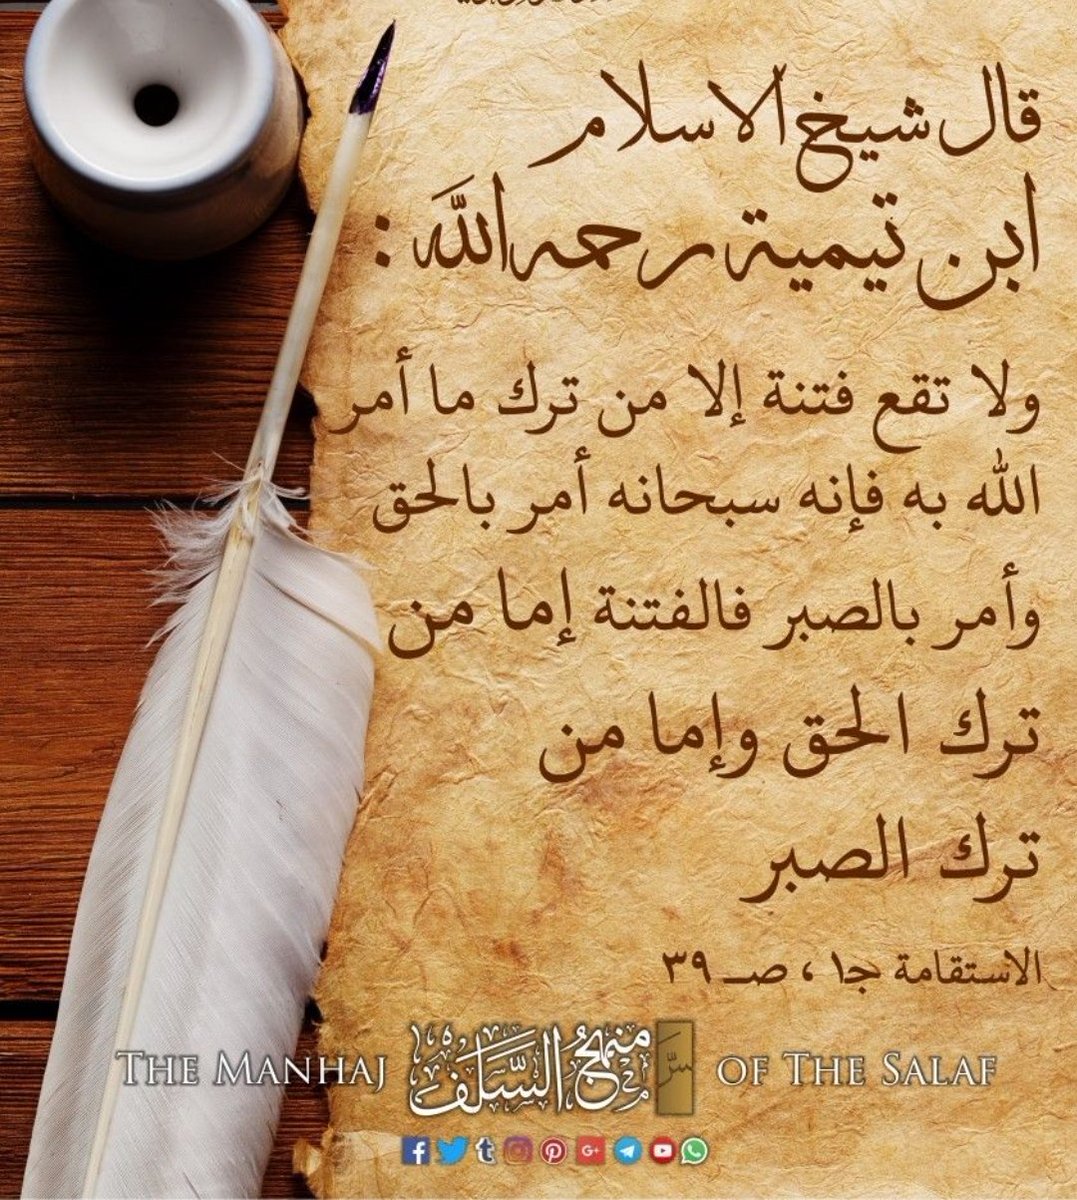 قال شيخ الاسلام
ابن تيمية رحمه الله :
ولا تقع فتنة إلا من ترك ما أمر
الله به فإنه سبحانه أمر بالحق
وأمر بالصبر فالفتنة إما من
ترك الحق وإما من
ترك الصبر
الاستقامة ج١ ، صـ ٣٩
THE MANHAJ منهج السلف OF THE SALAF